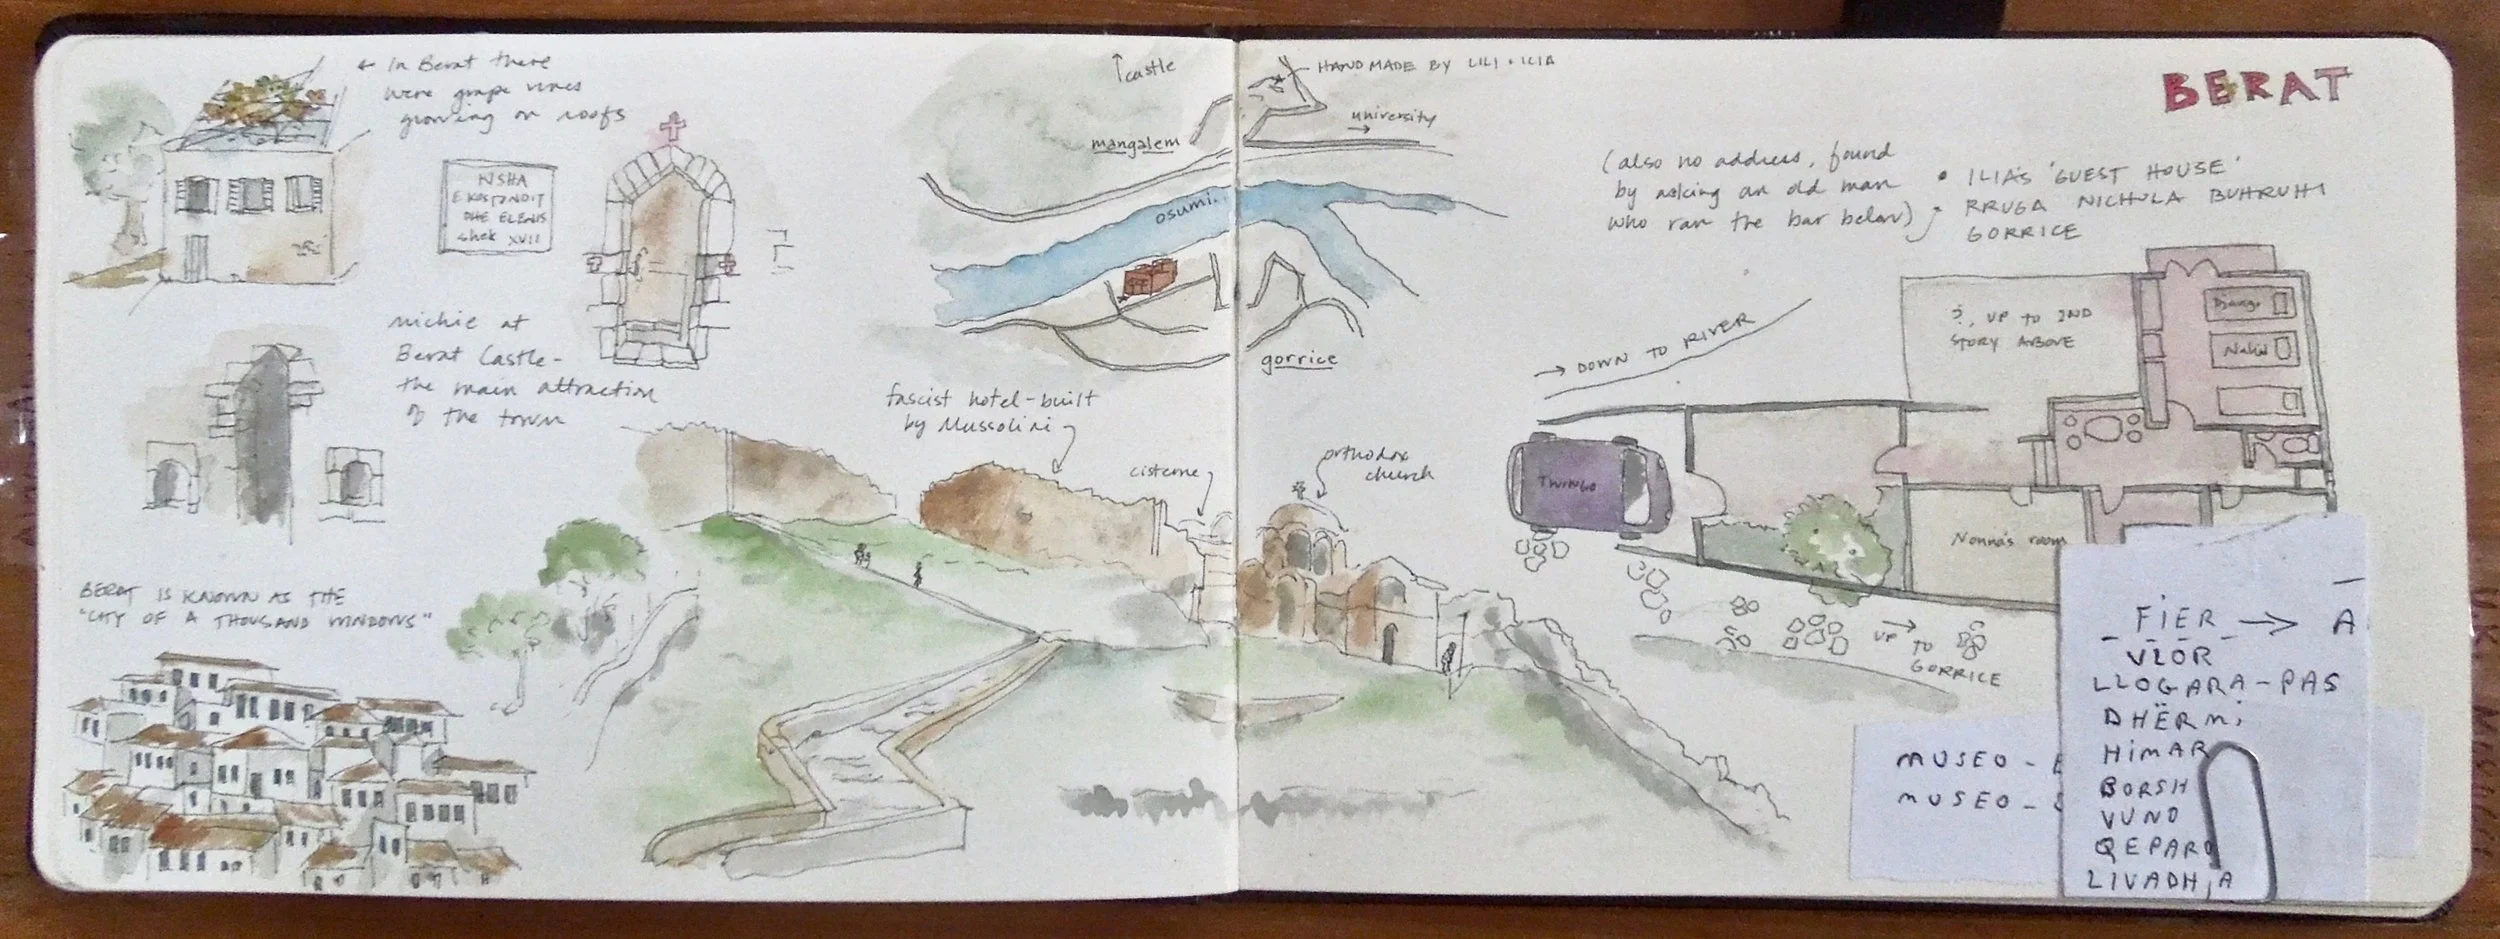 ← In Berat there
were grape vines
growing on roofs
NSHA
E KOSTANDIT
DHE ELENIS
Shek XVII
nichie at
Berat Castle-
the main attraction
of the town
BERAT IS KNOWN AS THE
"CITY OF A THOUSAND WINDOWS"
↑castle
mangalem
osumi
fascist hotel-built
by Mussolini
cisterne
HANDMADE BY LILI + ILIA
university
→
gorrice
orthodox
church
BERAT
(also no address, found
by asking an old man
who ran the bar below)
• ILIA'S 'GUEST HOUSE'
RRUGA NICHULA BUHRUHI
GORRICE
→ DOWN TO RIVER
?, UP TO 2ND
STORY ABOVE
Django
TWINGO
Nonna's room
UP →
TO
GORRICE
MUSEO -
MUSEO -
FiER → A
VLOR
LLOGARA-PAS
DHËRMi
HiMAR
BORSH
VUNO
QEPARO
LIVADHJA